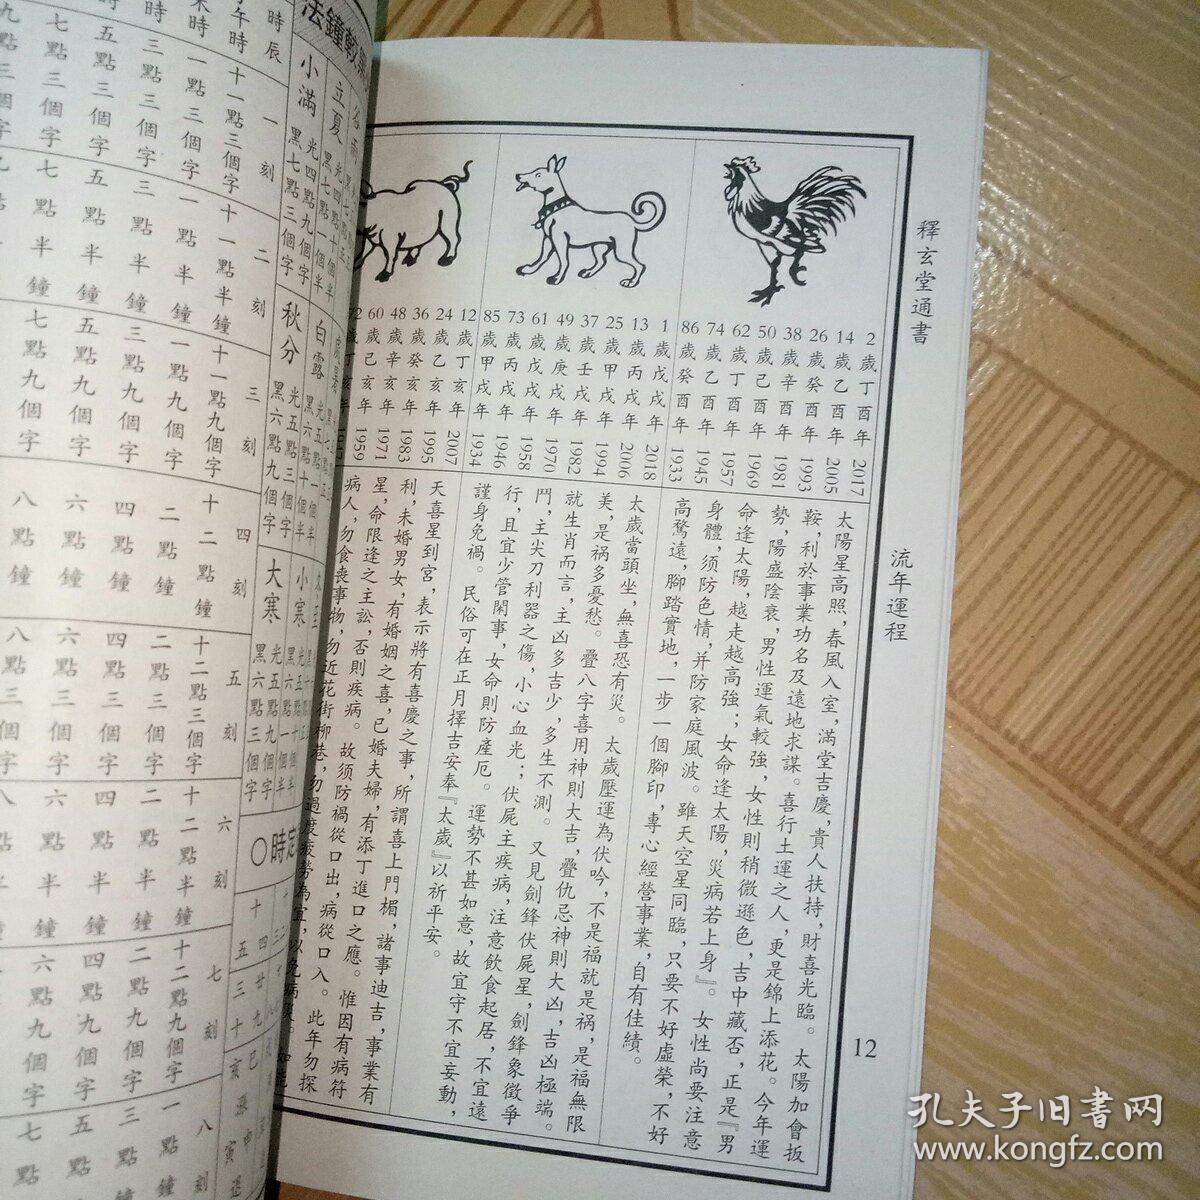 釋玄堂通書
流年運程
12
2歲丁酉年2017
14歲乙酉年2005
26歲癸酉年1993
38歲辛酉年1981
50歲己酉年1969
62歲丁酉年1957
74歲乙酉年1945
86歲癸酉年1933
太陽星高照，春風入室，滿堂吉慶，貴人扶持，財喜光臨。太陽加會扳
鞍，利於事業功名及遠地求謀。喜行土運之人，更是錦上添花。今年運
勢，陽盛陰衰，男性運氣較強，女性則稍微遜色，吉中藏否，正是『男
命逢太陽，越走越高強；女命逢太陽，災病若上身』。女性尚要注意
身體，须防色情，并防家庭風波。雖天空星同臨，只要不好虛榮，不好
高騖遠，腳踏實地，一步一個腳印，專心經營事業，自有佳績。
1歲戊戌年2018
13歲丙戌年2006
25歲甲戌年1994
37歲壬戌年1982
49歲庚戌年1970
61歲戊戌年1958
73歲丙戌年1946
85歲甲戌年1934
太歲當頭坐，無喜恐有災。太歲壓運為伏吟，不是福就是禍，是福無限
美，是禍多憂愁。疊八字喜用神則大吉，疊仇忌神則大凶，吉凶極端。
就生肖而言，主凶多吉少，多生不測。又見劍鋒伏屍星，劍鋒象徵爭
鬥，主尖刀利器之傷，小心血光；伏屍主疾病，注意飲食起居，不宜遠
行，且宜少管閑事，女命則防產厄。運勢不甚如意，故宜守不宜妄動，
謹身免禍。民俗可在正月擇吉安奉『太歲』以祈平安。
12歲丁亥年2007
24歲乙亥年1995
36歲癸亥年1983
48歲辛亥年1971
60歲己亥年1959
72歲丁亥年
天喜星到宮，表示將有喜慶之事，所謂喜上門楣，諸事迪吉，事業有
利，未婚男女，有婚姻之喜，已婚夫婦，有添丁進口之應。惟因有病符
星，命限逢之主訟，否則疾病。故须防禍從口出，病從口入。此年勿探
病人，勿食喪事物，勿近花街柳巷，勿過度疲勞為宜，以免病災。
立夏
光四點十個半
黑七點個半
小滿
光四點九個字
黑七點三個字
白露
光五點一個半
黑六點十個半
秋分
光五點三個字
黑六點九個字
小寒
大寒
光五點九個字
黑六點三個字
時辰
一刻
二刻
三刻
四刻
五刻
六刻
七刻
八刻
午時
十一點三個字
十一點半鐘
十一點九個字
十二點鐘
十二點三個字
十二點半鐘
十二點九個字
一點
一點三個字
一點半鐘
一點九個字
二點鐘
二點三個字
二點半鐘
二點九個字
三點
三點三個字
三點半鐘
三點九個字
四點鐘
四點三個字
四點半鐘
四點九個字
五點
五點三個字
五點半鐘
五點九個字
六點鐘
六點三個字
六點半鐘
六點九個字
七點
七點三個字
七點半鐘
七點九個字
八點鐘
八點三個字
八點半鐘
孔夫子旧书网
www.kongfz.com